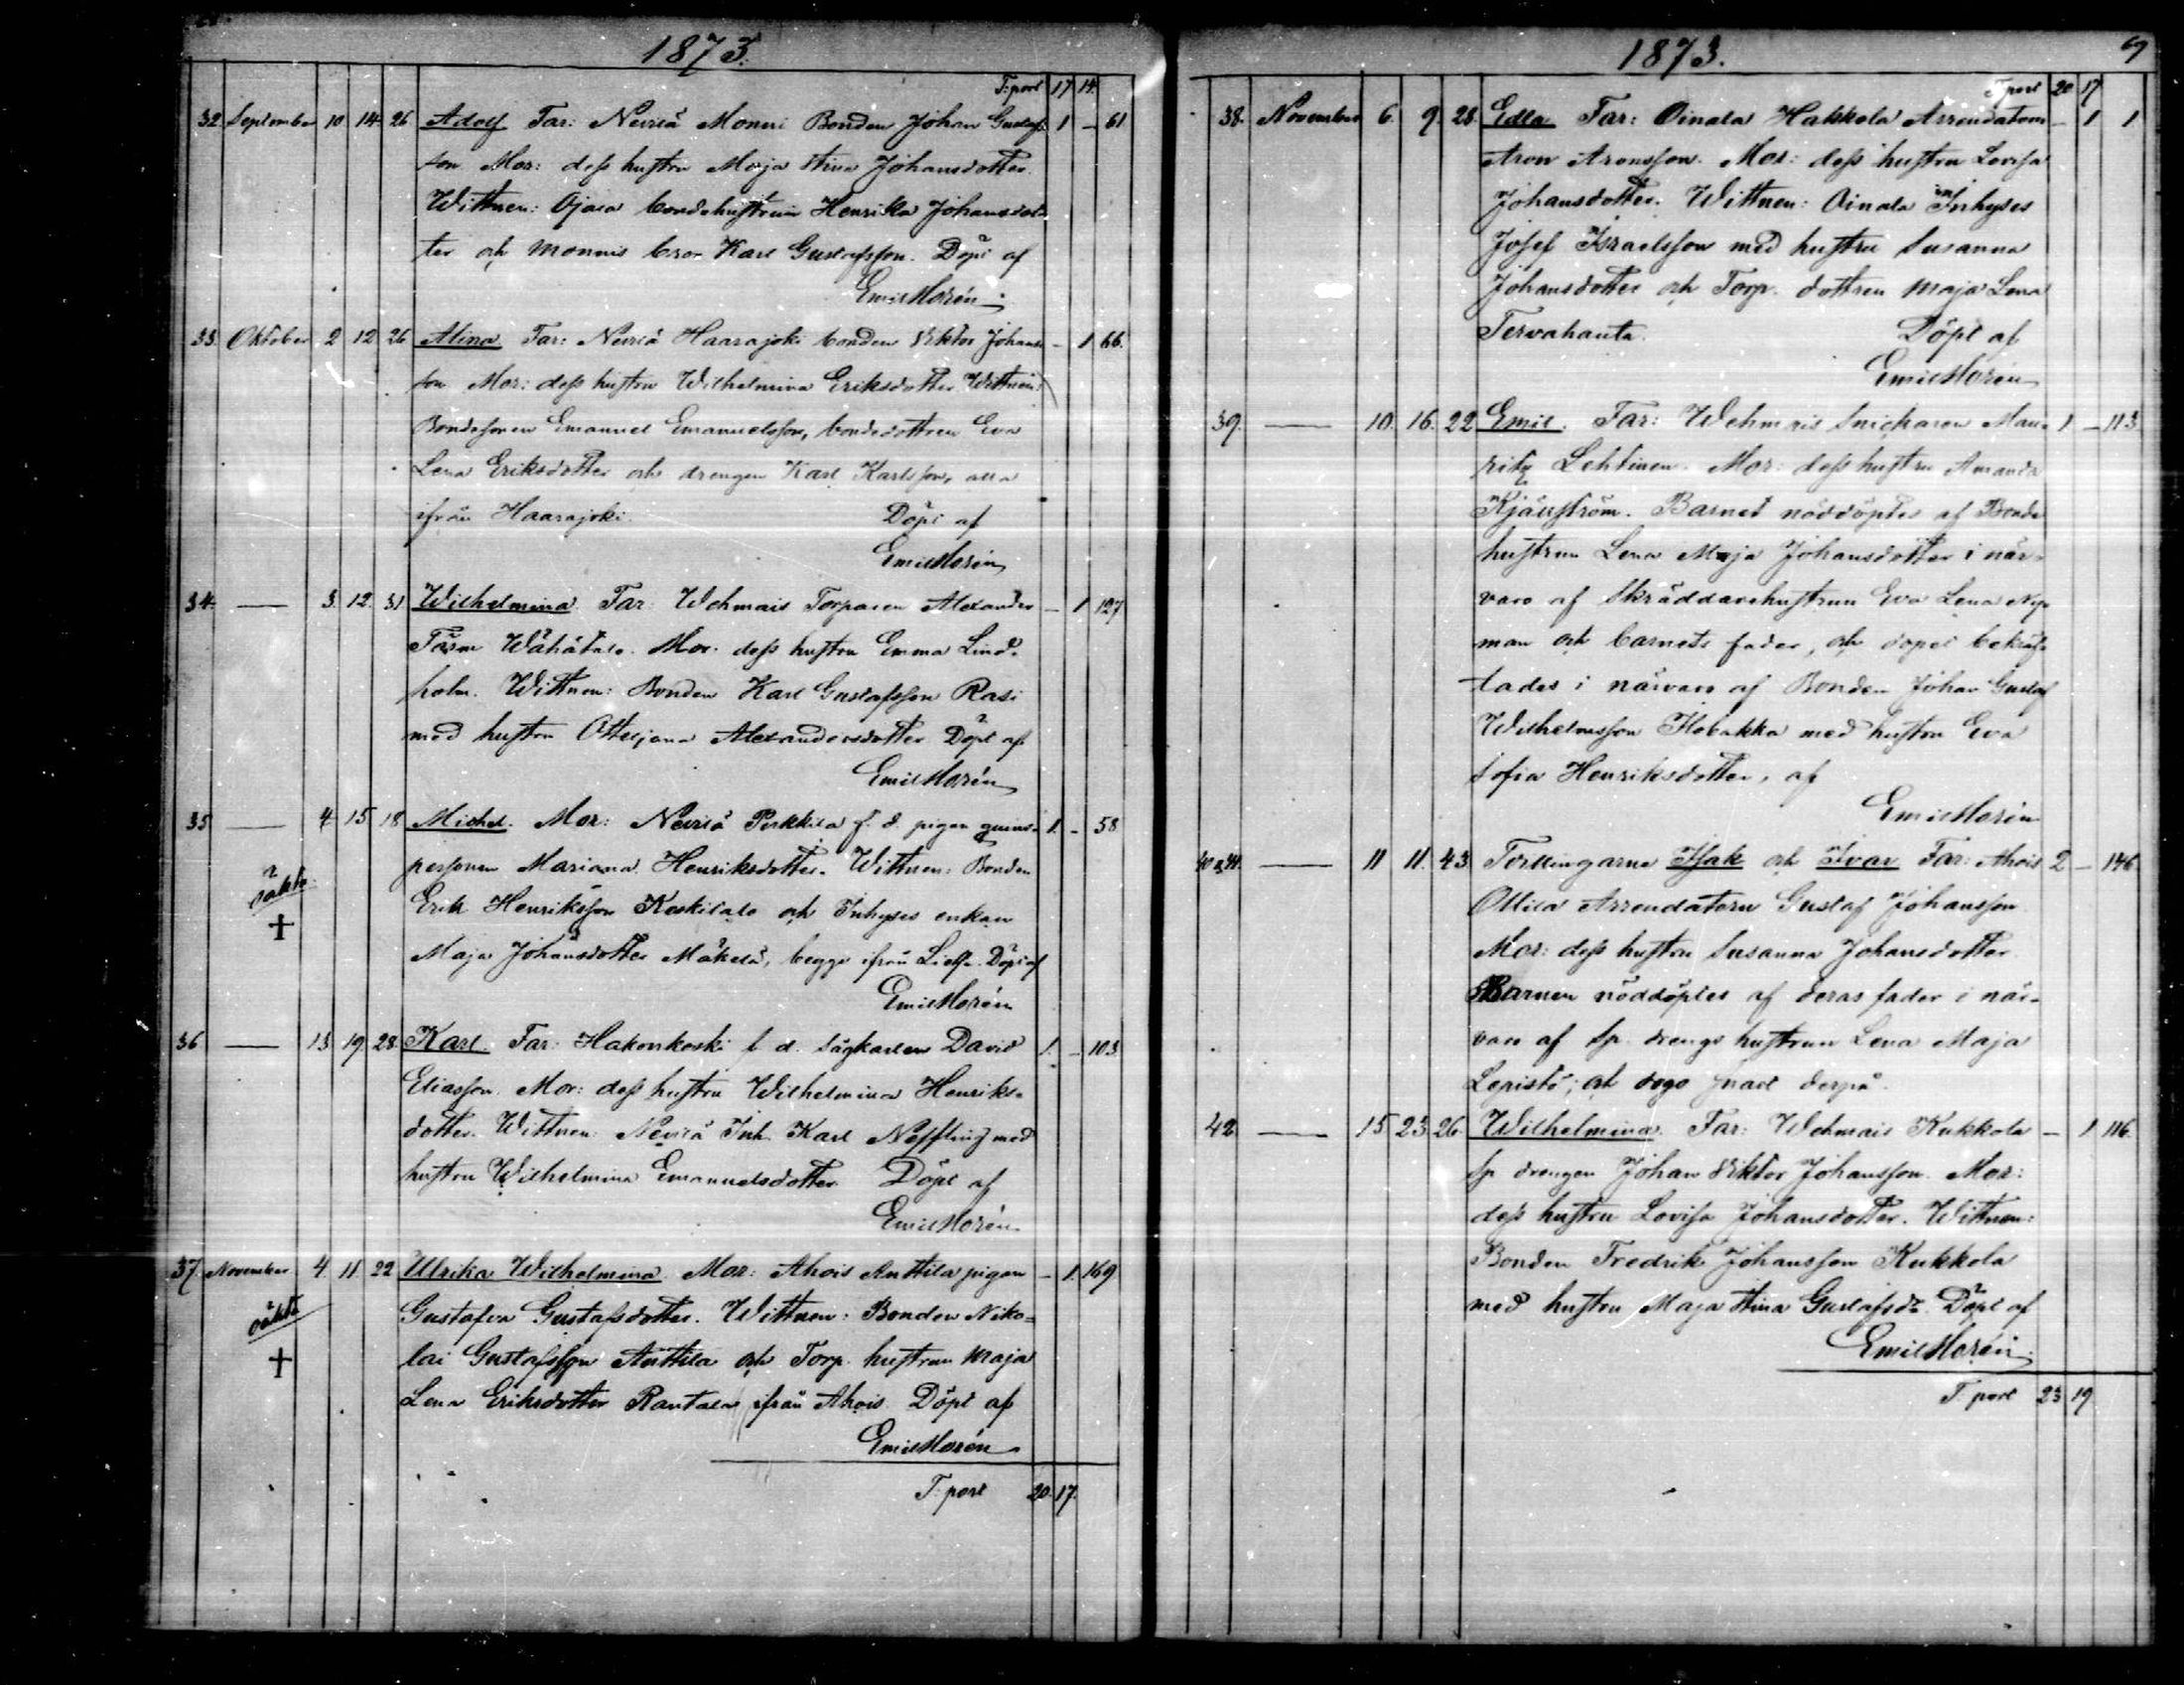 1873.
T: port 17 14
32 September 10 14 26 Adolf Far: Neuviä Monni Bonden Johan Gustafs- 1 - 61
son Mor: dess hustru Maja Stina Johansdotter.
Wittnen: Ojala bondehustrun Henrika Johansdot-
ter och Monnis bror Karl Gustafsson. Döpt af
Emil Morén
33. Oktober 2 12 26 Alina Far: Haarajoki bonden Viktor Johans- - 1 66.
son Mor: dess hustru Wilhelmina Eriksdotter Wittnen:
Bondesonen Emanuel Emanuelsson, bondedottren Eva
Lena Eriksdotter och drengen Karl Karlsson, alla
ifrån Haarajoki. Döpt af
Emil Morén
34. — 3. 12 31 Wilhelmina Far: Wehmais Torparen Alexander - 1 127
Wähätalo. Mor: dess hustru Emma Lind-
holm. Wittnen: Bonden Karl Gustafsson Rasi
med hustru Otteljana Alexandersdotter Döpt af
Emil Morén
35 — 4 15 18 Michel. Mor: Pirkkila f. d. pigan qvins- 1. - 58
oäkta
personen Mariana Henriksdotter. Wittnen: Bonden
Erik Henriksson Koskitalo och Inhyses enkan
Maja Johansdotter Mäkelä, begge ifrån Döpt af
Emil Morén
36 — 13 19 28 Karl Far: Hakonkoski l. d. Sågkarlen David 1. - 103
Eliasson. Mor: dess hustru Wilhelmina Henriks-
dotter. Wittnen: Inh. Karl Neffling med
hustru Wilhelmina Emanuelsdotter Döpt af
Emil Morén
37. November 4 11 22 Ulrika Wilhelmina Mor: Ahois Anttila pigan - 1. 169
oäkta
Gustafva Gustafsdotter. Wittnen: Bonden Niko-
lai Gustafsson Anttila och Torp. hustrun Maja
Lena Eriksdotter Rantala ifrån Ahois Döpt af
Emil Morén
T: port 20. 17.
1873. 69
T: port 20 17
38. November 6. 9. 28. Edla Far: Oinala Hakkola Arrendatorn - 1 1
Aron Aronsson. Mor: dess hustru Lovisa
Johansdotter. Wittnen: Oinala Inhyses
Josef Israelsson med hustru Susanna
Johansdotter och Torp. dottren Maja Lena
Tervahauta. Döpt af
Emil Morén
39. — 10. 16. 22 Emil. Far: Wehmais Snickaren Mau- 1 - 113
ritz Lehtinen. Mor: dess hustru Amanda
Barnet nöddöptes af Bonde
hustrun Lena Maja Johansdotter i när-
varo af Skräddarehustrun Eva Lena Ny-
man och barnets fader, och dopet bekräf-
tades i närvaro af Bonden Johan Gustaf
Wilhelmsson med hustru Eva
Sofia Henriksdotter, af
Emil Morén
40 & 41. — 11 11. 43 Tvillingarne Isak och Ivar Far: Ahois 2 - 146
Ollila Arrendatorn Gustaf Johansson
Mor: dess hustru Susanna Johansdotter.
Barnen nöddöptes af deras fader i när-
varo af Sp. drengs hustrun Lena Maja
Lepistö; och dogo snart derpå.
42 — 15 23 26 Wilhelmina. Far: Wehmais Kukkola - 1 116.
Sp. drengen Johan Viktor Johansson. Mor:
dess hustru Lovisa Johansdotter. Wittnen:
Bonden Fredrik Johansson Kukkola
med hustru Maja Stina Gustafsdr. Döpt af
Emil Morén
T: port 23 19